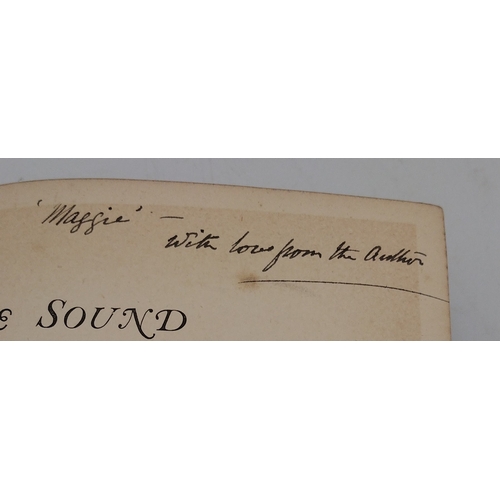 'Maggie' —
with love from the Author
E SOUND